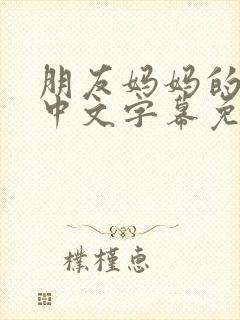 朋友妈妈的
中文字幕免
樸槿恵